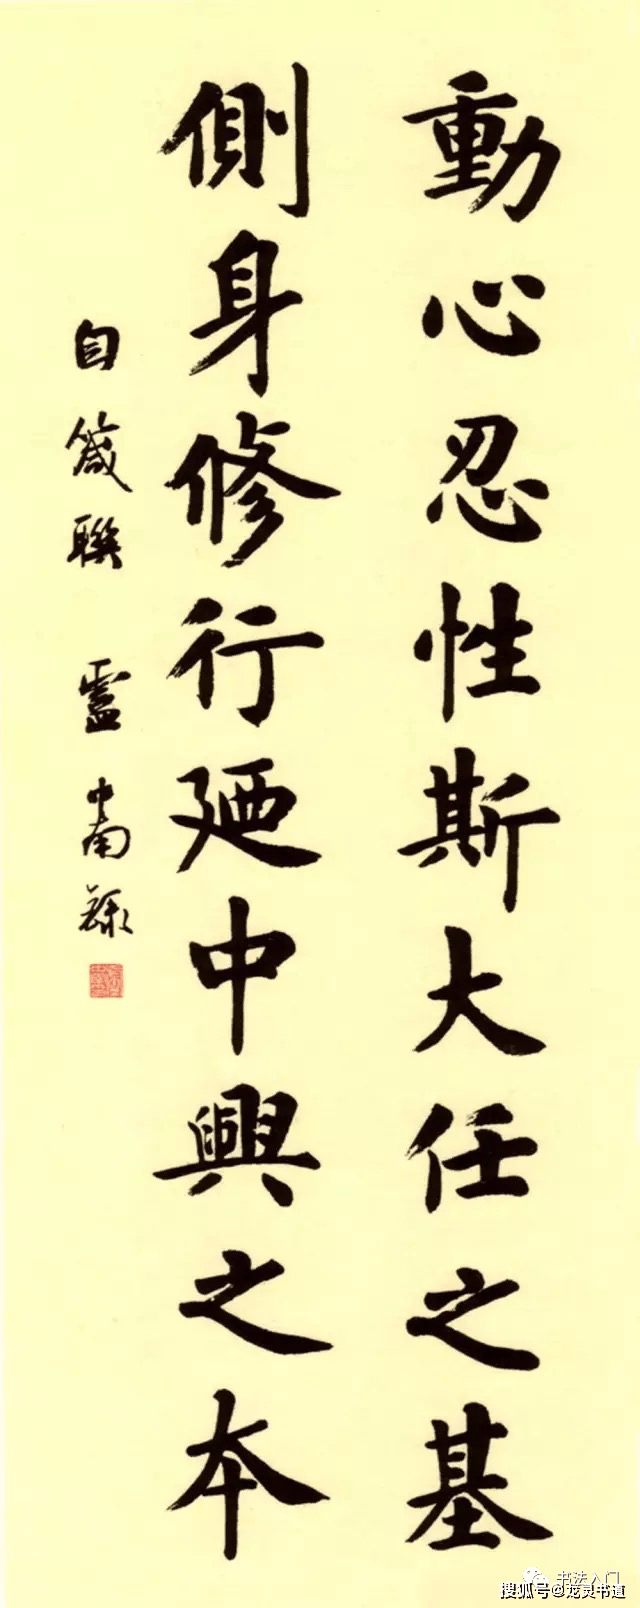 動心忍性斯大任之基
側身修行廼中興之本
自箴聯 盧中南録
书法入门
搜狐号@龙灵书道